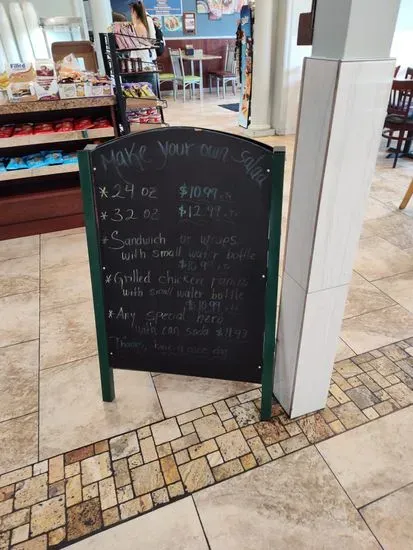 Make Your own Salad
* 24 oz $10.99
* 32 oz $12.99
* Sandwich or wraps
with small water bottle
$10.99
* Grilled chicken
with small water bottle
$10.99
* Any special hero
with can soda $11.93
Thanks, have a nice day